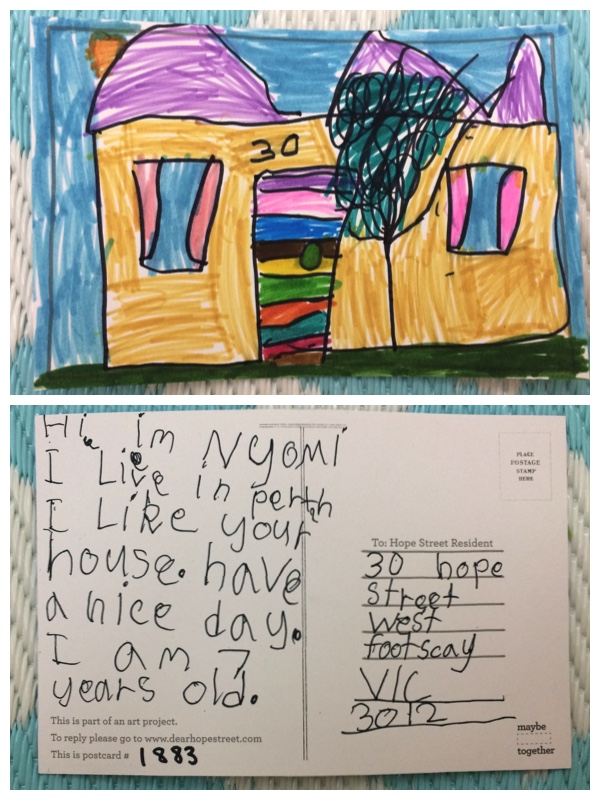 30
Hi, im Nyomi
I Live in perth
I Like your
house. have
a nice day.
I am 7
years old.
This is part of an art project.
To reply please go to www.dearhopestreet.com
This is postcard # 1883
PLACE
POSTAGE
STAMP
HERE
To: Hope Street Resident
30 hope
street
west
footscay
VIC
3012
maybe
together